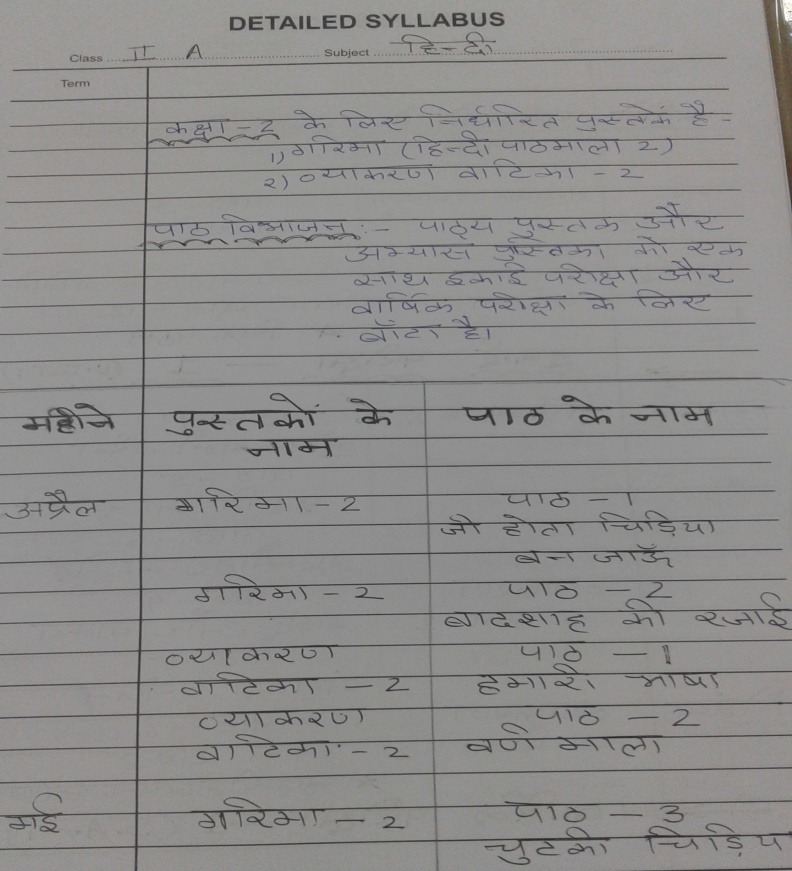 DETAILED SYLLABUS
Class II A Subject हिन्दी
Term
कक्षा - 2 के लिए निर्धारित पुस्तकें है -
1) गरिमा (हिन्दी पाठमाला 2)
२) व्याकरण वाटिका - 2
पाठ विभाजन :- पाठ्य पुस्तक और
अभ्यास पुस्तिका को एक
साथ इकाई परीक्षा और
वार्षिक परीक्षा के लिए
बाँटा है।
महीने पुस्तकों के पाठ के नाम
नाम
अप्रैल गरिमा - 2 पाठ - 1
जी होता चिड़िया
बन जाऊँ
गरिमा - 2 पाठ - 2
बादशाह की रजाई
व्याकरण पाठ - 1
वाटिका - 2 हमारी भाषा
व्याकरण पाठ - 2
वाटिका - 2 वर्ण माला
मई गरिमा - 2 पाठ - 3
चुटकी चिड़िय